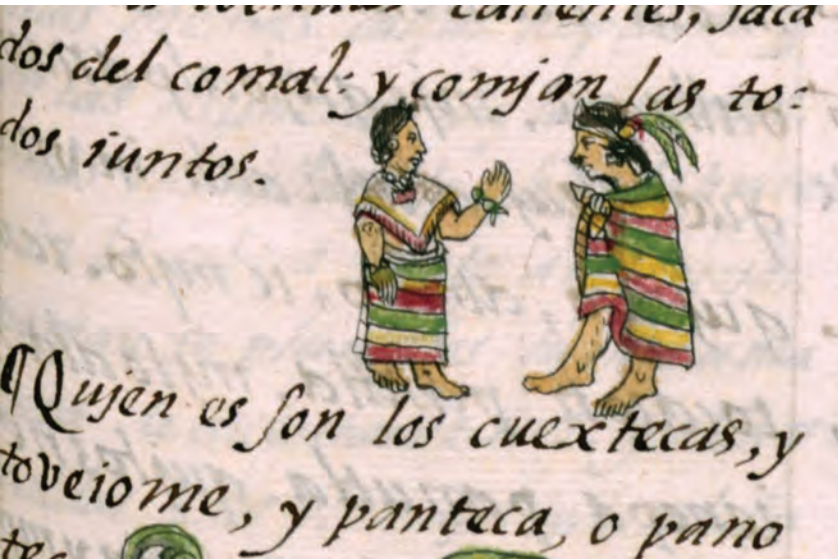 calientes, saca
dos del comal: y comjan las to:
dos iuntos.
¶Qujen es son los cuextecas, y
toveiome, y panteca, o pano
tec